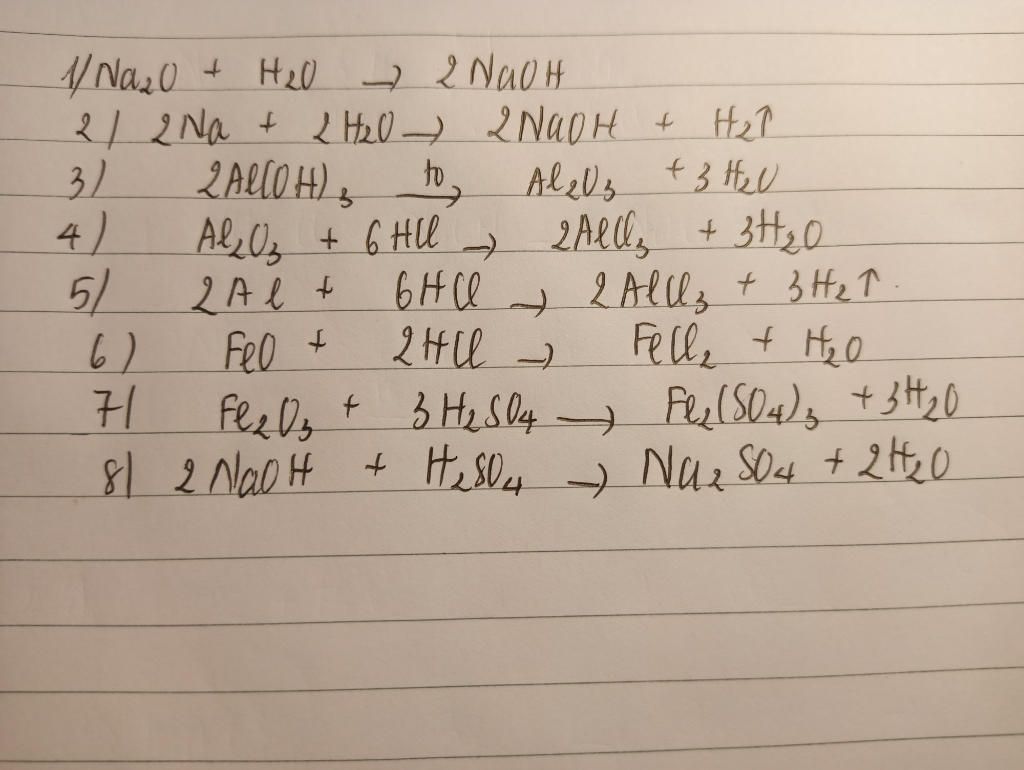 1/ Na₂O + H₂O → 2NaOH
2/ 2Na + 2H₂O → 2NaOH + H₂↑
3) 2Al(OH)₃ →(to) Al₂O₃ + 3H₂O
4) Al₂O₃ + 6HCl → 2AlCl₃ + 3H₂O
5/ 2Al + 6HCl → 2AlCl₃ + 3H₂↑.
6) FeO + 2HCl → FeCl₂ + H₂O
7/ Fe₂O₃ + 3H₂SO₄ → Fe₂(SO₄)₃ + 3H₂O
8/ 2NaOH + H₂SO₄ → Na₂SO₄ + 2H₂O